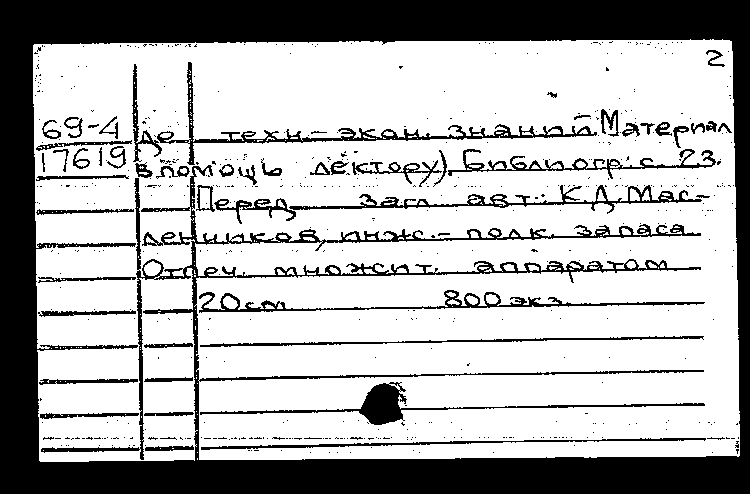 2
69-4 де техн.-экон. знаний. Материал
17619 в помощь лектору). Библиогр: с. 23.
Перед загл. авт.: К.Д. Мас-
ленников, инж.-полк. запаса
Отпеч. множит. аппаратом
20 см 800 экз.